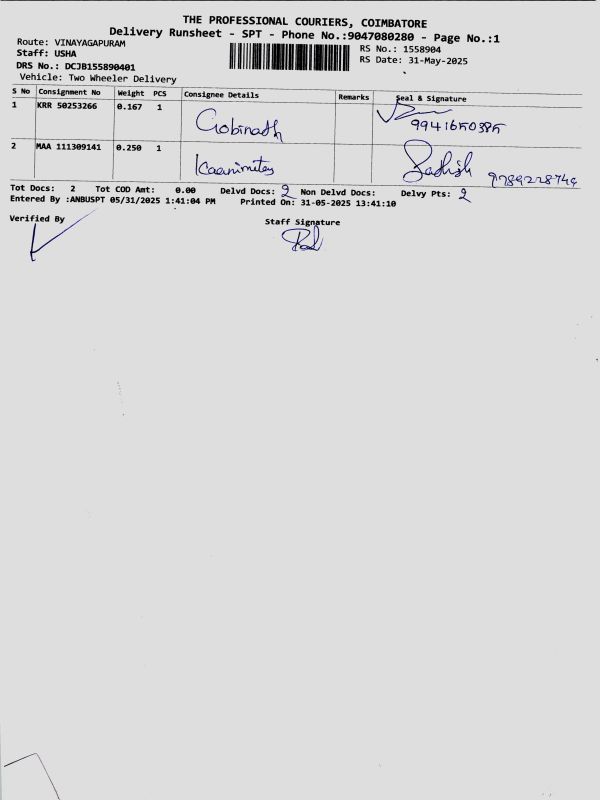 THE PROFESSIONAL COURIERS, COIMBATORE
Delivery Runsheet - SPT - Phone No.:9047080280 - Page No.:1
Route: VINAYAGAPURAM
Staff: USHA
DRS No.: DCJB155890401
Vehicle: Two Wheeler Delivery
RS No.: 1558904
RS Date: 31-May-2025
S No Consignment No Weight PCS Consignee Details Remarks Seal & Signature
1 KRR 50253266 0.167 1 Gobinadh 9941650385
2 MAA 111309141 0.250 1 Sadhish 9789228749
Tot Docs: 2 Tot COD Amt: 0.00 Delvd Docs: 2 Non Delvd Docs: Delvy Pts: 2
Entered By :ANBUSPT 05/31/2025 1:41:04 PM Printed On: 31-05-2025 13:41:10
Verified By
Staff Signature